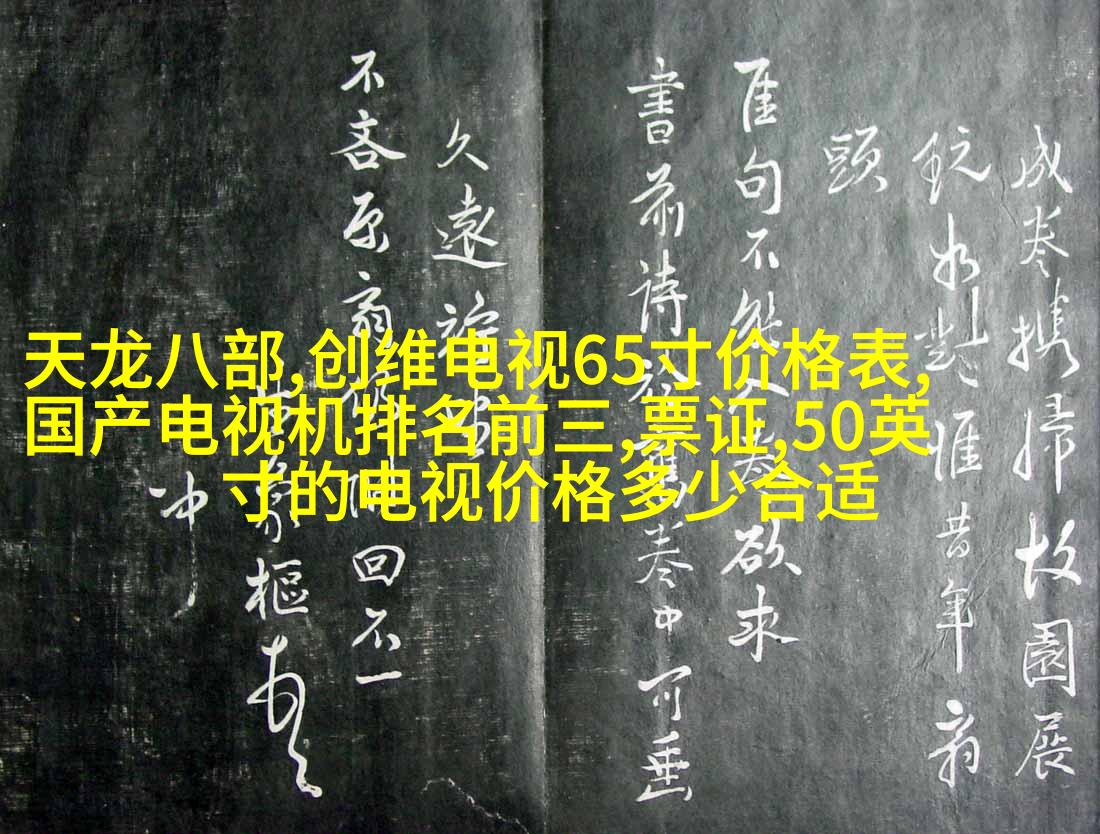 天龙八部,创维电视65寸价格表,
国产电视机排名前三,票证,50英
寸的电视价格多少合适
成卷携歸故園展
玩 惟昔年
頭
句不能入卷欲求
書前诗 卷中可垂
久遠
不吝原 回不一
樞
冲